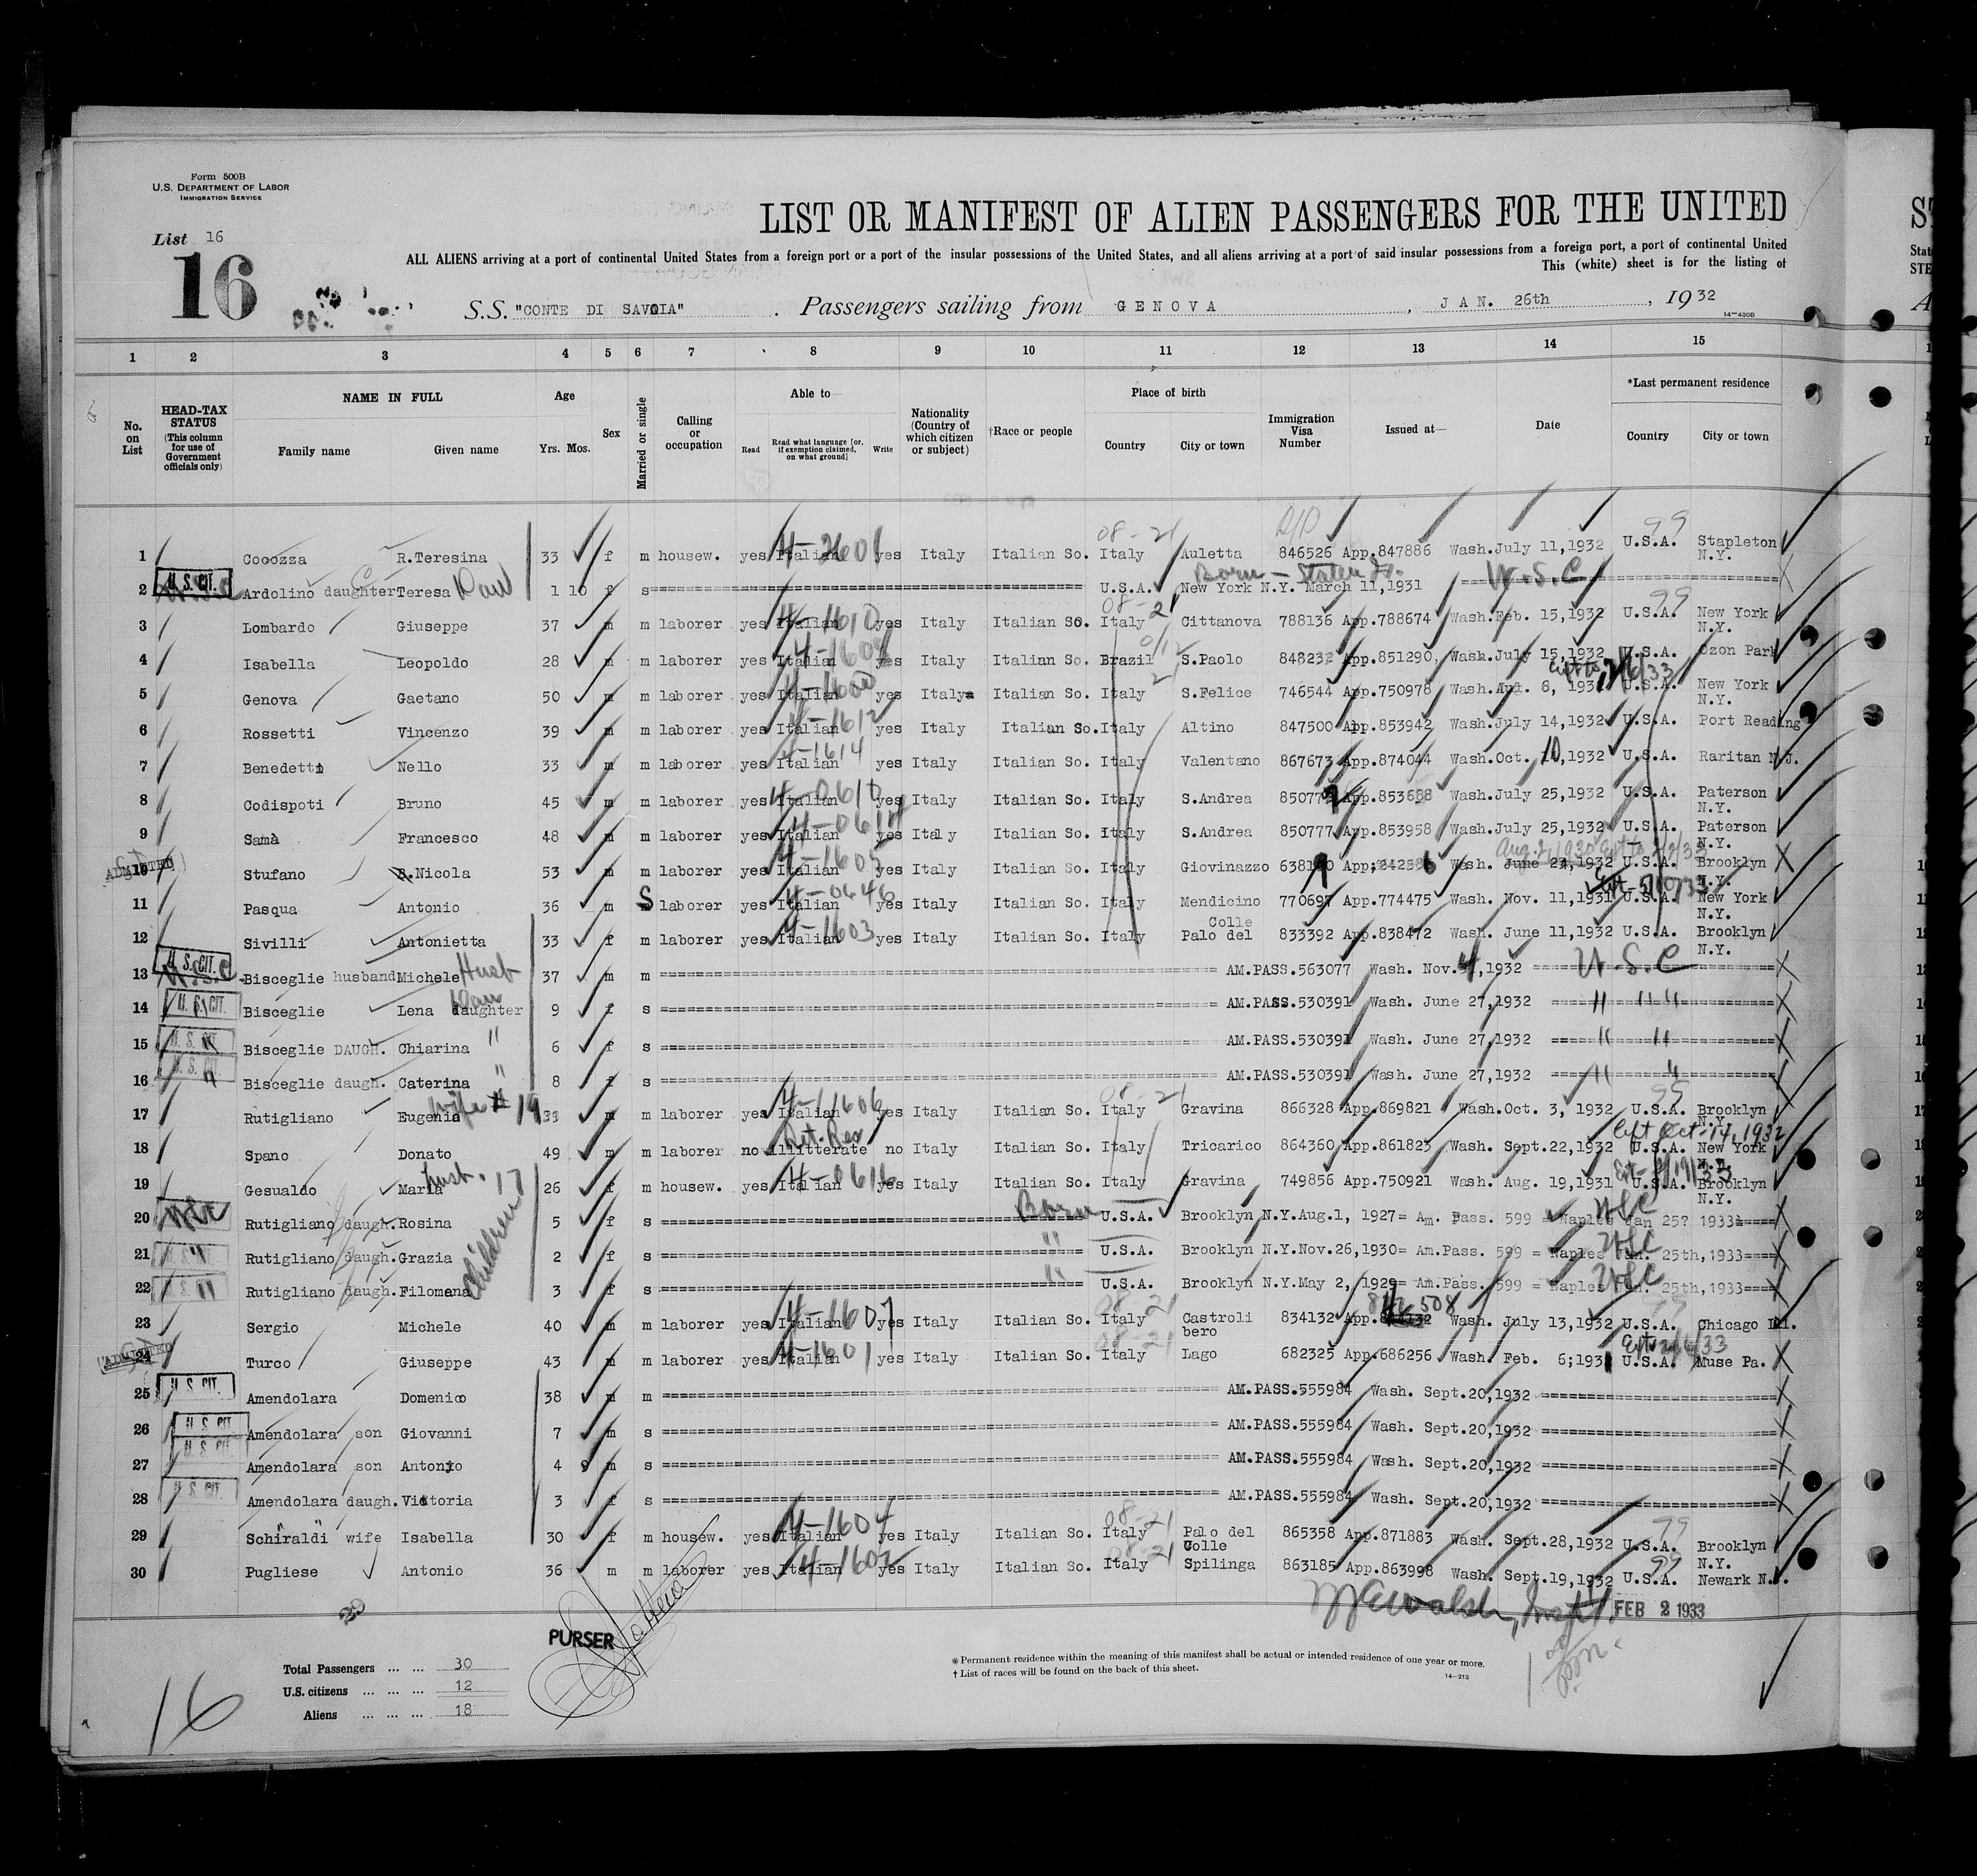 Form 500B
U.S. DEPARTMENT OF LABOR
IMMIGRATION SERVICE
List 16
16
LIST OR MANIFEST OF ALIEN PASSENGERS FOR THE UNITED
ALL ALIENS arriving at a port of continental United States from a foreign port or a port of the insular possessions of the United States, and all aliens arriving at a port of said insular possessions from a foreign port, a port of continental United
This (white) sheet is for the listing of
S.S. "CONTE DI SAVOIA" . Passengers sailing from GENOVA , JAN. 26th , 1932
14-430B
1 2 3 4 5 6 7 8 9 10 11 12 13 14 15
No. on List
HEAD-TAX STATUS (This column for use of Government officials only)
NAME IN FULL
Family name Given name
Age
Yrs. Mos.
Sex
Married or single
Calling or occupation
Able to
Read Read what language [or, if exemption claimed, on what ground] Write
Nationality (Country of which citizen or subject)
†Race or people
Place of birth
Country City or town
Immigration Visa Number
Issued at
Date
*Last permanent residence
Country City or town
1 Cocozza R.Teresina 33 f m housew. yes Italian yes Italy Italian So. Italy Auletta 846526 App.847886 Wash.July 11,1932 U.S.A. Stapleton N.Y.
4-2601 08-21 99
Born - Staten Is. U.S.C
2 U.S.CIT. Ardolino daughter Teresa Dau 1 10 f s U.S.A. New York N.Y. March 11,1931
3 Lombardo Giuseppe 37 m m laborer yes Italian yes Italy Italian So. Italy Cittanova 788136 App.788674 Wash.Feb. 15,1932 U.S.A. New York N.Y.
4-1610 08-21 99
4 Isabella Leopoldo 28 m m laborer yes Italian yes Italy Italian So. Brazil S.Paolo 848232 App.851290, Wash.July 15,1932 U.S.A. Ozon Park
5 Genova Gaetano 50 m m laborer yes Italian yes Italy Italian So. Italy S.Felice 746544 App.750978 Wash. 6, 193 U.S.A. New York N.Y.
6 Rossetti Vincenzo 39 m m laborer yes Italian yes Italy Italian So. Italy Altino 847500 App.853942 Wash.July 14,1932 U.S.A. Port Reading
4-1612
7 Benedetti Nello 33 m m laborer yes Italian yes Italy Italian So. Italy Valentano 867673 App.874044 Wash.Oct. 10,1932 U.S.A. Raritan N.J.
4-1614
8 Codispoti Bruno 45 m m laborer yes Italian yes Italy Italian So. Italy S.Andrea App. Wash.July 25,1932 U.S.A. Paterson N.Y.
9 Samà Francesco 48 m m laborer yes Italian yes Italy Italian So. Italy S.Andrea 850777 App.853958 Wash.July 25,1932 U.S.A. Paterson N.Y.
10 ADMITTED Stufano Nicola 53 m m laborer yes Italian yes Italy Italian So. Italy Giovinazzo Wash. June 1932 U.S.A. Brooklyn N.Y.
4-1605
11 Pasqua Antonio 36 m S laborer yes Italian yes Italy Italian So. Italy Mendicino 770697 App.774475 Wash. Nov. 11,1931 U.S.A. New York N.Y.
4-0646
12 Sivilli Antonietta 33 f m laborer yes Italian yes Italy Italian So. Italy Palo del Colle 833392 App.838472 Wash. June 11,1932 U.S.A. Brooklyn N.Y.
4-1603
13 U.S.CIT. Bisceglie husband Michele Husb 37 m m AM.PASS.563077 Wash. Nov. 4,1932 U.S.C
14 U.S.CIT. Bisceglie Lena daughter Dau 9 f s AM.PASS.530391 Wash. June 27,1932 " " "
15 U.S. CIT Bisceglie DAUGH. Chiarina " 6 f s AM.PASS.530391 Wash. June 27,1932 " "
16 U.S. CIT Bisceglie daugh. Caterina " 8 f s AM.PASS.530391 Wash. June 27,1932 " "
17 Rutigliano Eugenio wife # 19 33 m m laborer yes Italian yes Italy Italian So. Italy Gravina 866328 App.869821 Wash.Oct. 3, 1932 U.S.A. Brooklyn N.Y.
4-1606 08-21 99
18 Spano Donato 49 m m laborer no illitterate no Italy Italian So. Italy Tricarico 864360 App.861823 Wash. Sept.22,1932 U.S.A. New York N.Y.
Ret. Res Oct-14,1932
19 Gesualdo Maria husb. 17 26 f m housew. yes Italian yes Italy Italian So. Italy Gravina 749856 App.750921 Wash. Aug. 19,1931 U.S.A. Brooklyn N.Y.
4-0616
20 Rutigliano daugh. Rosina 5 f s Born U.S.A. Brooklyn N.Y.Aug.1, 1927= Am. Pass. 599 = Naples Jan 25? 1933 USC
21 Rutigliano daugh. Grazia 2 f s " U.S.A. Brooklyn N.Y.Nov.26,1930= Am.Pass. 599 = Naples Jan. 25th,1933 USC
22 Rutigliano daugh. Filomena 3 f s " U.S.A. Brooklyn N.Y.May 2, 1929= Am.Pass. 599 = Naples Jan. 25th,1933 USC
Children
23 Sergio Michele 40 m m laborer yes Italian yes Italy Italian So. Italy Castroli bero 834132 App. Wash. July 13,1932 U.S.A. Chicago Ill.
4-1607 08-21 99
24 ADMITTED Turco Giuseppe 43 m m laborer yes Italian yes Italy Italian So. Italy Lago 682325 App.686256 Wash. Feb. 6;1931 U.S.A. Muse Pa.
4-1601 08-21
25 U.S. CIT. Amendolara Domenico 38 m m AM.PASS.555984 Wash. Sept.20,1932
26 U.S. CIT. Amendolara son Giovanni 7 m s AM.PASS.555984 Wash. Sept.20,1932
27 U.S. CIT. Amendolara son Antonio 4 m s AM.PASS.555984 Wash. Sept.20,1932
28 U.S. CIT. Amendolara daugh. Vittoria 3 f s AM.PASS.555984 Wash. Sept.20,1932
29 Schiraldi wife Isabella 30 f m housew. yes Italian yes Italy Italian So. Italy Palo del Colle 865358 App.871883 Wash. Sept.28,1932 U.S.A. Brooklyn N.Y.
4-1604 08-21 99
30 Pugliese Antonio 36 m m laborer yes Italian yes Italy Italian So. Italy Spilinga 863185 App.863998 Wash. Sept.19,1932 U.S.A. Newark N.J.
4-1607 08-21 99
Walsh, Inspt. FEB 2 1933
PURSER
Total Passengers ... ... 30
U.S. citizens ... ... ... 12
Aliens ... ... ... 18
16
* Permanent residence within the meaning of this manifest shall be actual or intended residence of one year or more.
† List of races will be found on the back of this sheet.
14-213